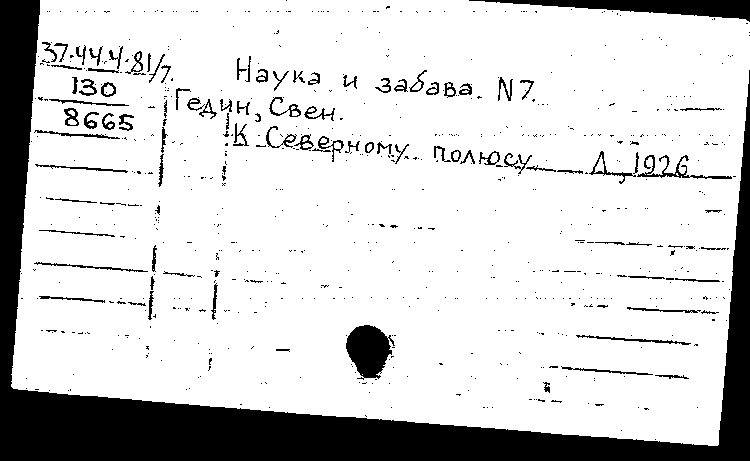 37.44.4.81/7.
130
8665
Наука и забава. N7.
Гедин, Свен.
К Северному полюсу Л, 1926